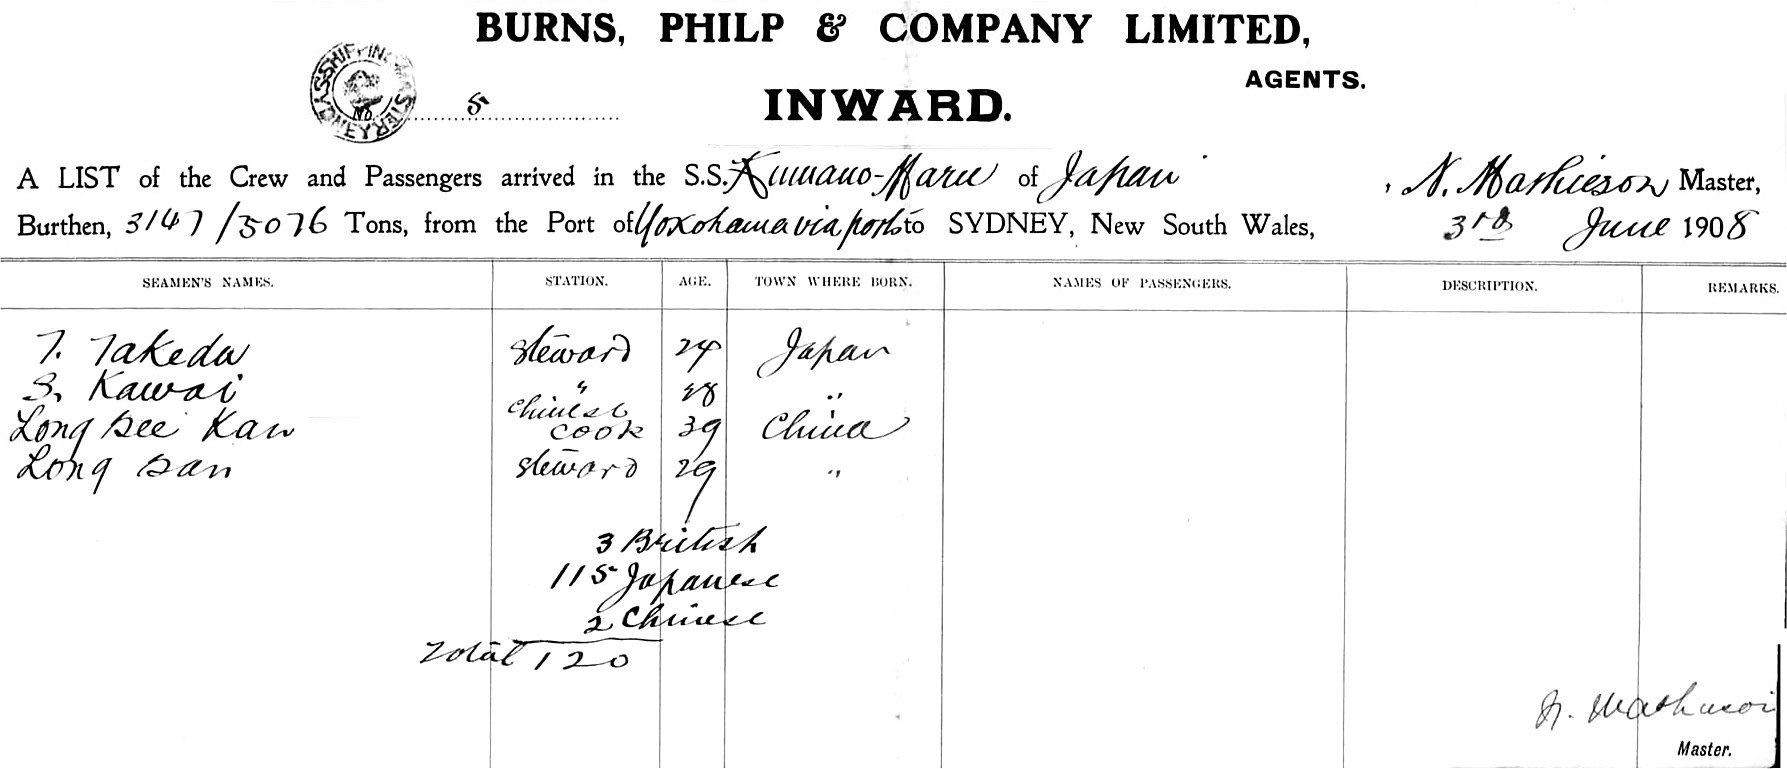 BURNS, PHILP & COMPANY LIMITED,
AGENTS.
SYDNEY SHIPPING MASTER No. 5
INWARD.
A LIST of the Crew and Passengers arrived in the S.S. Kumano-Maru of Japan, N. Mathieson Master,
Burthen, 3147/5076 Tons, from the Port of Yokohama via ports to SYDNEY, New South Wales, 3rd June 1908
SEAMEN'S NAMES. STATION. AGE. TOWN WHERE BORN. NAMES OF PASSENGERS. DESCRIPTION. REMARKS.
T. Takeda steward 24 Japan
S. Kawai " 28 "
Long See Kan Chinese cook 39 China
Long San steward 29 "
3 British
115 Japanese
2 Chinese
Total 120
N. Mathieson
Master.